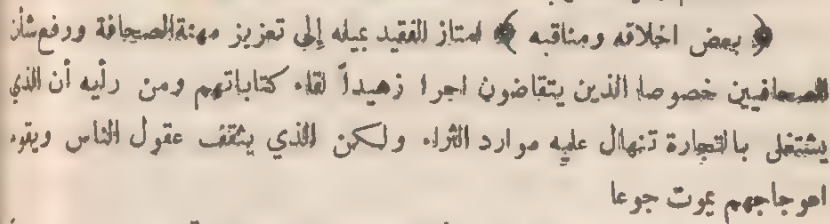 ﴿ بعض اخلاقه ومناقبه ﴾ امتاز الفقيد بميله إلى تعزيز مهنة الصحافة ورفع شأن
الصحافيين خصوصا الذين يتقاضون اجرا زهيداً لقاء كتاباتهم ومن رأيه أن الذي
يشتغل بالتجارة تنهال عليه موارد الثراء ولكن الذي يثقف عقول الناس ويقوم
اعوجاجهم يموت جوعا